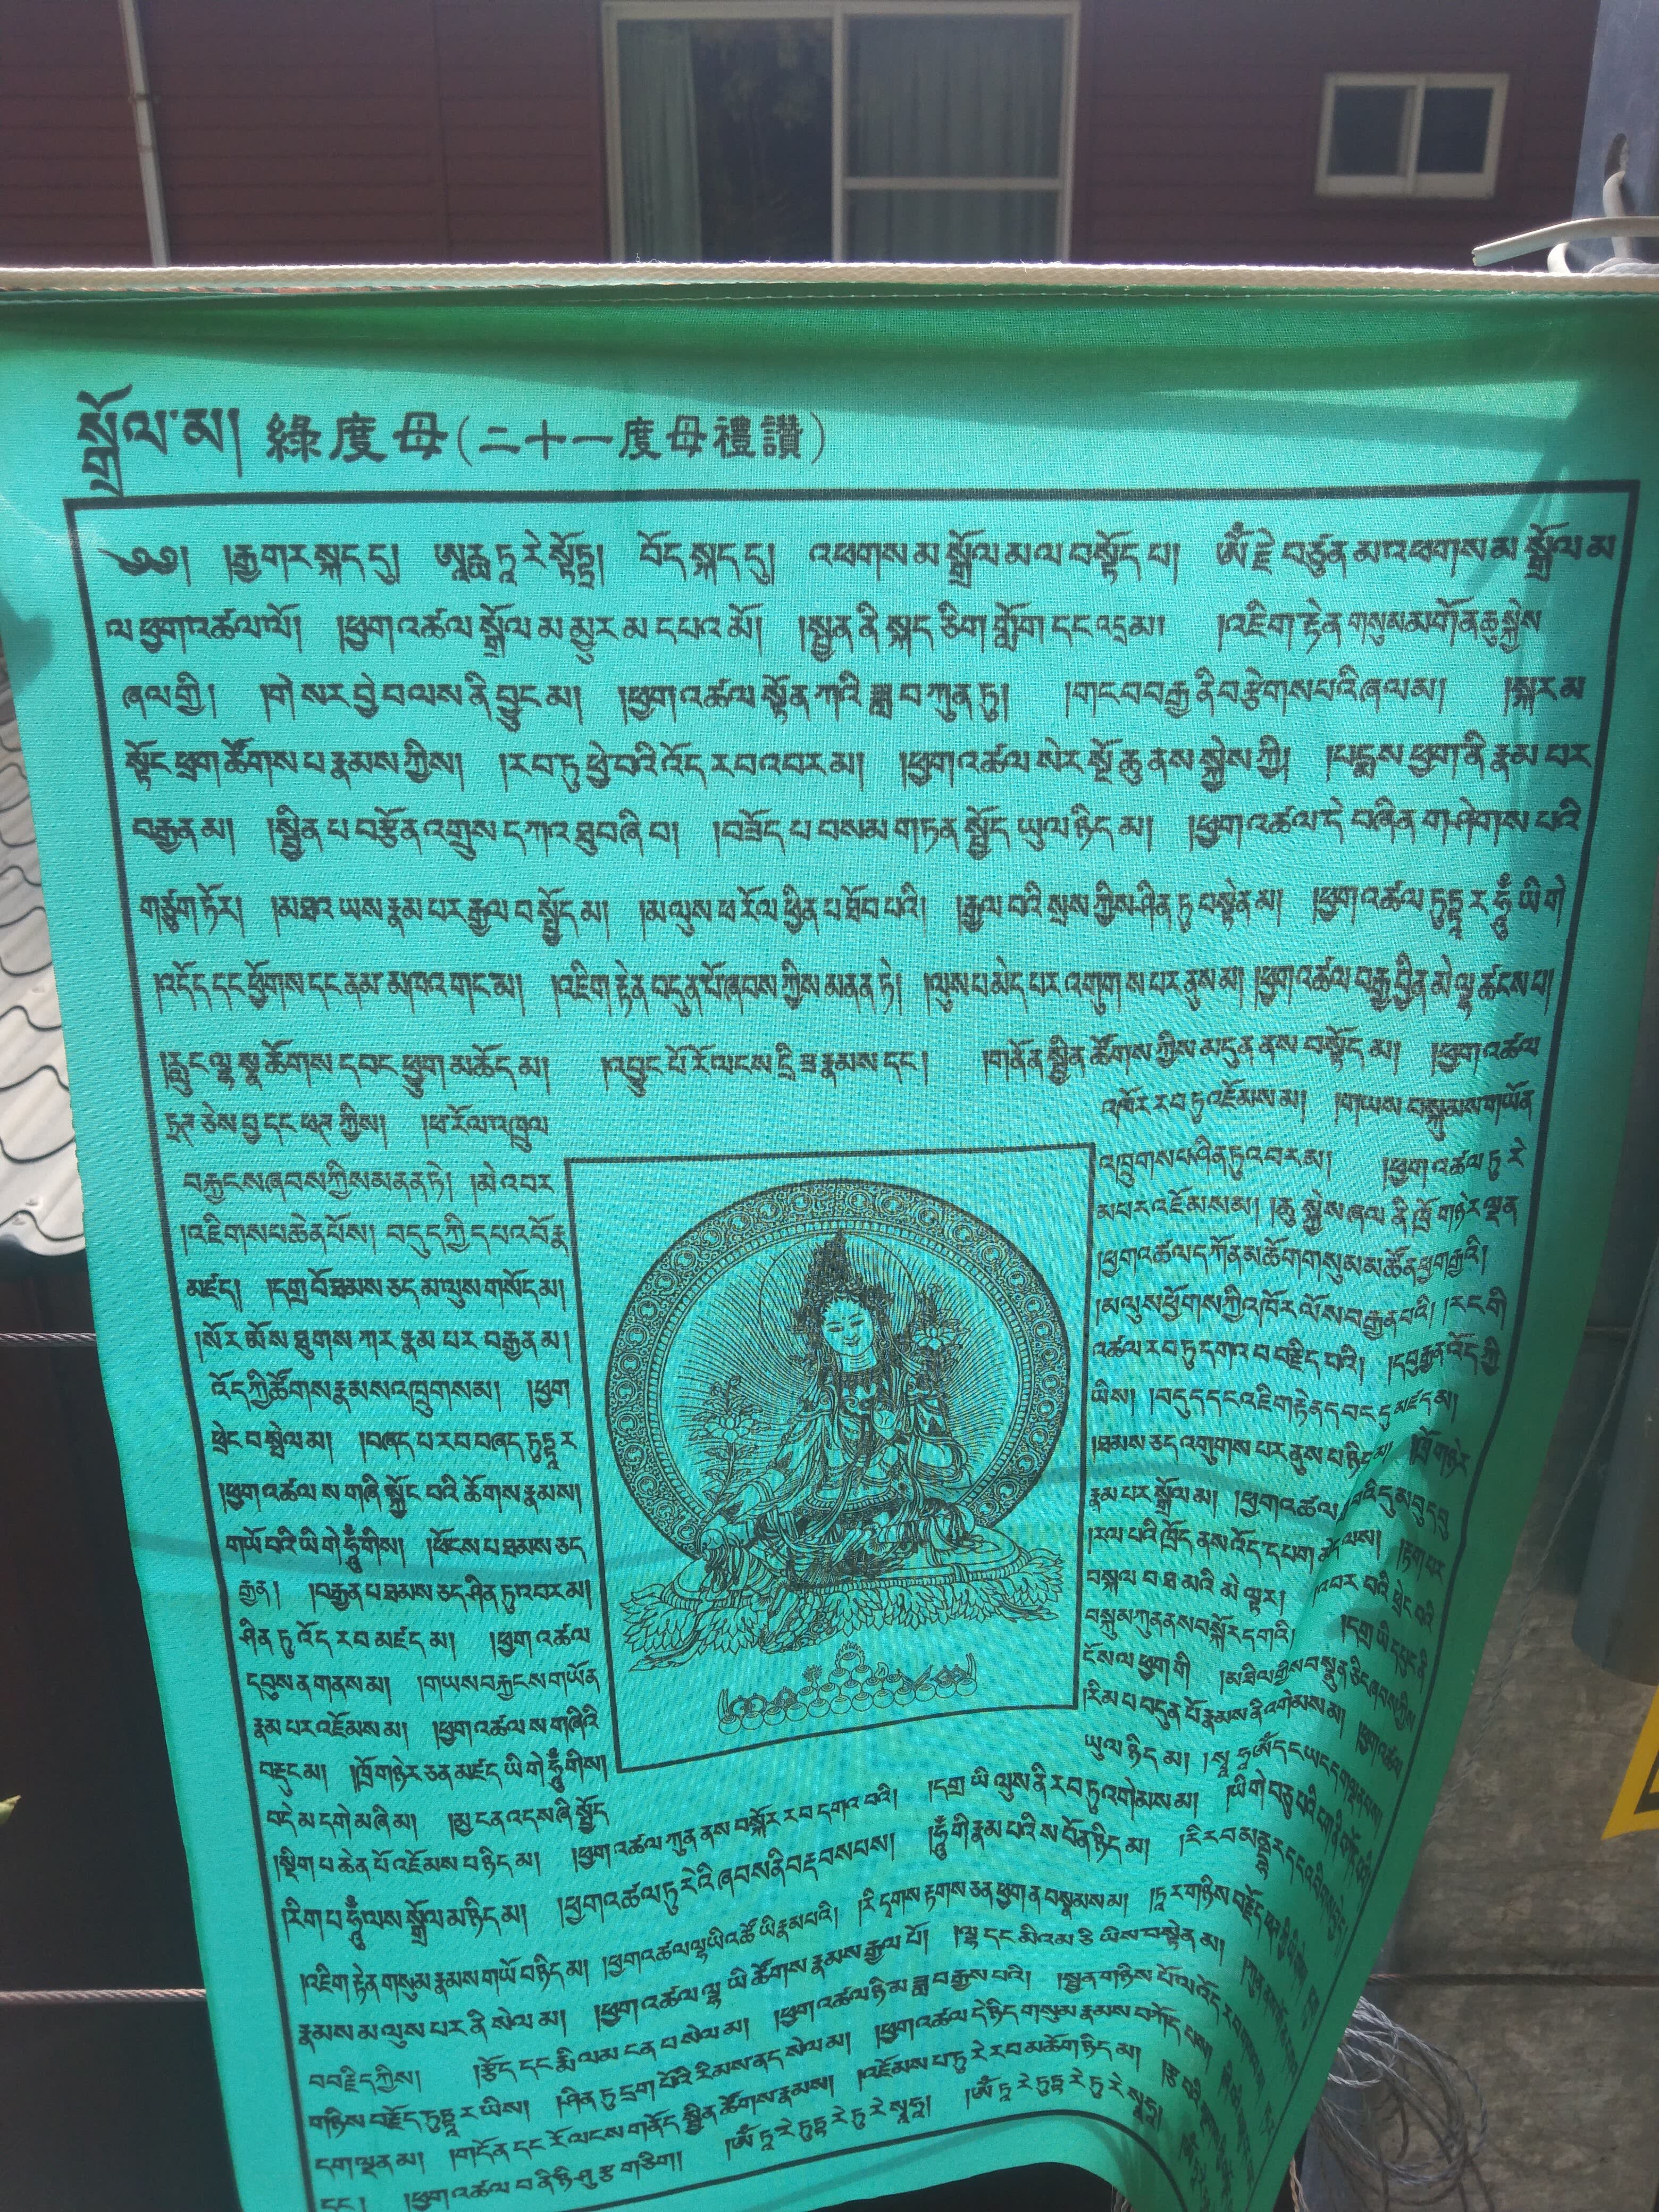 སྒྲོལ་མ། 綠度母(二十一度母禮讚)
༄༅། །རྒྱ་གར་སྐད་དུ། ཨཱརྻ་ཏཱ་རེ་སྟོཏྲ། བོད་སྐད་དུ། འཕགས་མ་སྒྲོལ་མ་ལ་བསྟོད་པ། ཨོཾ་རྗེ་བཙུན་མ་འཕགས་མ་སྒྲོལ་མ
ལ་ཕྱག་འཚལ་ལོ། །ཕྱག་འཚལ་སྒྲོལ་མ་མྱུར་མ་དཔའ་མོ། །སྤྱན་ནི་སྐད་ཅིག་གློག་དང་འདྲ་མ། །འཇིག་རྟེན་གསུམ་མགོན་ཆུ་སྐྱེས
ཞལ་གྱི། །གེ་སར་བྱེ་བ་ལས་ནི་བྱུང་མ། །ཕྱག་འཚལ་སྟོན་ཀའི་ཟླ་བ་ཀུན་ཏུ། །གང་བ་བརྒྱ་ནི་བརྩེགས་པའི་ཞལ་མ། །སྐར་མ
སྟོང་ཕྲག་ཚོགས་པ་རྣམས་ཀྱིས། །རབ་ཏུ་ཕྱེ་བའི་འོད་རབ་འབར་མ། །ཕྱག་འཚལ་སེར་སྔོ་ཆུ་ནས་སྐྱེས་ཀྱི། །པདྨས་ཕྱག་ནི་རྣམ་པར
བརྒྱན་མ། །སྦྱིན་པ་བརྩོན་འགྲུས་དཀའ་ཐུབ་ཞི་བ། །བཟོད་པ་བསམ་གཏན་སྤྱོད་ཡུལ་ཉིད་མ། །ཕྱག་འཚལ་དེ་བཞིན་གཤེགས་པའི
གཙུག་ཏོར། །མཐའ་ཡས་རྣམ་པར་རྒྱལ་བ་སྤྱོད་མ། །མ་ལུས་ཕ་རོལ་ཕྱིན་པ་ཐོབ་པའི། །རྒྱལ་བའི་སྲས་ཀྱིས་ཤིན་ཏུ་བསྟེན་མ། །ཕྱག་འཚལ་ཏུཏྟཱ་ར་ཧཱུྃ་ཡི་གེ
།འདོད་དང་ཕྱོགས་དང་ནམ་མཁའ་གང་མ། །འཇིག་རྟེན་བདུན་པོ་ཞབས་ཀྱིས་མནན་ཏེ། །ལུས་པ་མེད་པར་འགུགས་པར་ནུས་མ། །ཕྱག་འཚལ་བརྒྱ་བྱིན་མེ་ལྷ་ཚངས་པ།
།རླུང་ལྷ་སྣ་ཚོགས་དབང་ཕྱུག་མཆོད་མ། །འབྱུང་པོ་རོ་ལངས་དྲི་ཟ་རྣམས་དང་། །གནོན་སྦྱིན་ཚོགས་ཀྱིས་མདུན་ནས་བསྟོད་མ། །ཕྱག་འཚལ
ཏྲཊ་ཅེས་བྱ་དང་ཕཊ་ཀྱིས། །ཕ་རོལ་འཁྲུལ
འཁོར་རབ་ཏུ་འཇོམས་མ། །གཡས་བསྐུམས་གཡོན
བརྐྱངས་ཞབས་ཀྱིས་མནན་ཏེ། །མེ་འབར
འཁྲུགས་པ་ཤིན་ཏུ་འབར་མ། །ཕྱག་འཚལ་ཏུ་རེ
།འཇིགས་པ་ཆེན་པོས། བདུད་ཀྱི་དཔའ་བོ་རྣ
མ་པར་འཇོམས་མ། །ཆུ་སྐྱེས་ཞལ་ནི་ཁྲོ་གཉེར་ལྡན
མཛད། །དགྲ་བོ་ཐམས་ཅད་མ་ལུས་གསོད་མ།
།ཕྱག་འཚལ་དཀོན་མཆོག་གསུམ་མཚོན་ཕྱག་རྒྱའི།
།སོར་མོས་ཐུགས་ཀར་རྣམ་པར་བརྒྱན་མ།
།མ་ལུས་ཕྱོགས་ཀྱི་འཁོར་ལོས་བརྒྱན་པའི། །རང་གི
འོད་ཀྱི་ཚོགས་རྣམས་འཁྲུགས་མ། །ཕྱག
འཚལ་རབ་ཏུ་དགའ་བ་བརྗིད་པའི། །དབུ་རྒྱན་འོད་ཀྱི
ཕྲེང་བ་སྤེལ་མ། །བཞད་པ་རབ་བཞད་ཏུཏྟཱ་ར
ཡིས། །བདུད་དང་འཇིག་རྟེན་དབང་དུ་མཛད་མ།
།ཕྱག་འཚལ་ས་གཞི་སྐྱོང་བའི་ཚོགས་རྣམས།
།ཐམས་ཅད་འགུགས་པར་ནུས་པ་ཉིད་མ། །ཁྲོ་གཉེར
གཡོ་བའི་ཡི་གེ་ཧཱུྃ་གིས། །ཕོངས་པ་ཐམས་ཅད
རྣམ་པར་སྒྲོལ་མ། །ཕྱག་འཚལ
རྒྱན། །བརྒྱན་པ་ཐམས་ཅད་ཤིན་ཏུ་འབར་མ།
།རལ་པའི་ཁྲོད་ནས་འོད་དཔག་མེད་ལས། །རྟག་པར
ཤིན་ཏུ་འོད་རབ་མཛད་མ། །ཕྱག་འཚལ
བསྐལ་བ་ཐ་མའི་མེ་ལྟར། །འབར་བའི་ཕྲེང་བའི
དབུས་ན་གནས་མ། །གཡས་བརྐྱངས་གཡོན
བསྐུམ་ཀུན་ནས་བསྐོར་དགའི། །དགྲ་ཡི་དཔུང་ནི
རྣམ་པར་འཇོམས་མ། །ཕྱག་འཚལ་ས་གཞིའི
ངོས་ལ་ཕྱག་གི །མཐིལ་གྱིས་བསྣུན་ཅིང་ཞབས་ཀྱིས
བརྡུང་མ། །ཁྲོ་གཉེར་ཅན་མཛད་ཡི་གེ་ཧཱུྃ་གིས།
།རིམ་པ་བདུན་པོ་རྣམས་ནི་འགེམས་མ། །ཕྱག་འཚལ
བདེ་མ་དགེ་མ་ཞི་མ། །མྱ་ངན་འདས་ཞི་སྤྱོད
ཡུལ་ཉིད་མ། །སྭཱ་ཧཱ་ཨོཾ་དང་ཡང་དག་ལྡན་པས།
།སྡིག་པ་ཆེན་པོ་འཇོམས་པ་ཉིད་མ། །ཕྱག་འཚལ་ཀུན་ནས་བསྐོར་རབ་དགའ་བའི། །དགྲ་ཡི་ལུས་ནི་རབ་ཏུ་འགེམས་མ། །ཡི་གེ་བཅུ་པའི
།རིག་པ་ཧཱུྃ་ལས་སྒྲོལ་མ་ཉིད་མ། །ཕྱག་འཚལ་ཏུ་རེའི་ཞབས་ནི་བརྡབས་པས། །ཧཱུྃ་གི་རྣམ་པའི་ས་བོན་ཉིད་མ། །རི་རབ་མནྡྷ་ར་དང་འབིགས་བྱེད།
།འཇིག་རྟེན་གསུམ་རྣམས་གཡོ་བ་ཉིད་མ། །ཕྱག་འཚལ་ལྷ་ཡི་མཚོ་ཡི་རྣམ་པའི། །རི་དྭགས་རྟགས་ཅན་ཕྱག་ན་བསྣམས་མ། །ཏཱ་ར་གཉིས་བརྗོད་ཕཊ་ཀྱི་ཡི་གེས།
རྣམས་མ་ལུས་པར་ནི་སེལ་མ། །ཕྱག་འཚལ་ལྷ་ཡི་ཚོགས་རྣམས་རྒྱལ་པོ། །ལྷ་དང་མིའམ་ཅི་ཡིས་བསྟེན་མ།
བ་བརྗིད་ཀྱིས། །རྩོད་དང་རྨི་ལམ་ངན་པ་སེལ་མ། །ཕྱག་འཚལ་ཉི་མ་ཟླ་བ་རྒྱས་པའི། །སྤྱན་གཉིས་པོ་ལ་འོད་རབ་གསལ་མ།
གཉིས་བརྗོད་ཏུཏྟཱ་ར་ཡིས། །ཤིན་ཏུ་དྲག་པོའི་རིམས་ནད་སེལ་མ། །ཕྱག་འཚལ་དེ་ཉིད་གསུམ་རྣམས་བཀོད་པས།
དག་ལྡན་མ། །གདོན་དང་རོ་ལངས་གནོད་སྦྱིན་ཚོགས་རྣམས། །འཇོམས་པ་ཏུ་རེ་རབ་མཆོག་ཉིད་མ།
དང་། །ཕྱག་འཚལ་བ་ནི་ཉི་ཤུ་རྩ་གཅིག། །ཨོཾ་ཏཱ་རེ་ཏུཏྟཱ་རེ་ཏུ་རེ་སྭཱཧཱ། །ཨོཾ་ཏཱ་རེ་ཏུཏྟཱ་རེ་ཏུ་རེ་སྭཱཧཱ།